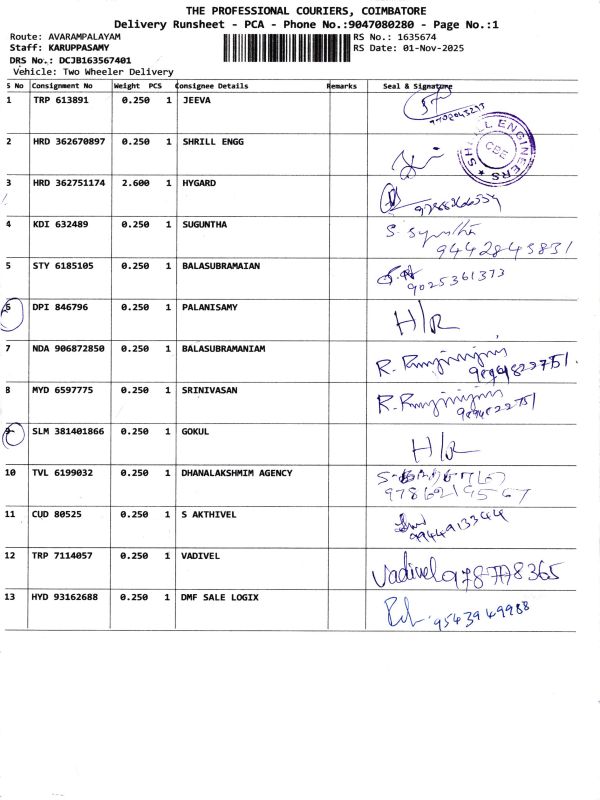 THE PROFESSIONAL COURIERS, COIMBATORE
Delivery Runsheet - PCA - Phone No.:9047080280 - Page No.:1
Route: AVARAMPALAYAM RS No.: 1635674
Staff: KARUPPASAMY RS Date: 01-Nov-2025
DRS No.: DCJB163567401
Vehicle: Two Wheeler Delivery
S No Consignment No Weight PCS Consignee Details Remarks Seal & Signature
1 TRP 613891 0.250 1 JEEVA
2 HRD 362670897 0.250 1 SHRILL ENGG
SHRILL ENGINEERS ★ CBE
3 HRD 362751174 2.600 1 HYGARD
4 KDI 632489 0.250 1 SUGUNTHA
9442845831
5 STY 6185105 0.250 1 BALASUBRAMAIAN
9025361373
6 DPI 846796 0.250 1 PALANISAMY H/R
7 NDA 906872850 0.250 1 BALASUBRAMANIAM
8 MYD 6597775 0.250 1 SRINIVASAN
9 SLM 381401866 0.250 1 GOKUL H/R
10 TVL 6199032 0.250 1 DHANALAKSHMIM AGENCY
9786219567
11 CUD 80525 0.250 1 S AKTHIVEL
9944913344
12 TRP 7114057 0.250 1 VADIVEL Vadivel
13 HYD 93162688 0.250 1 DMF SALE LOGIX 9543949988